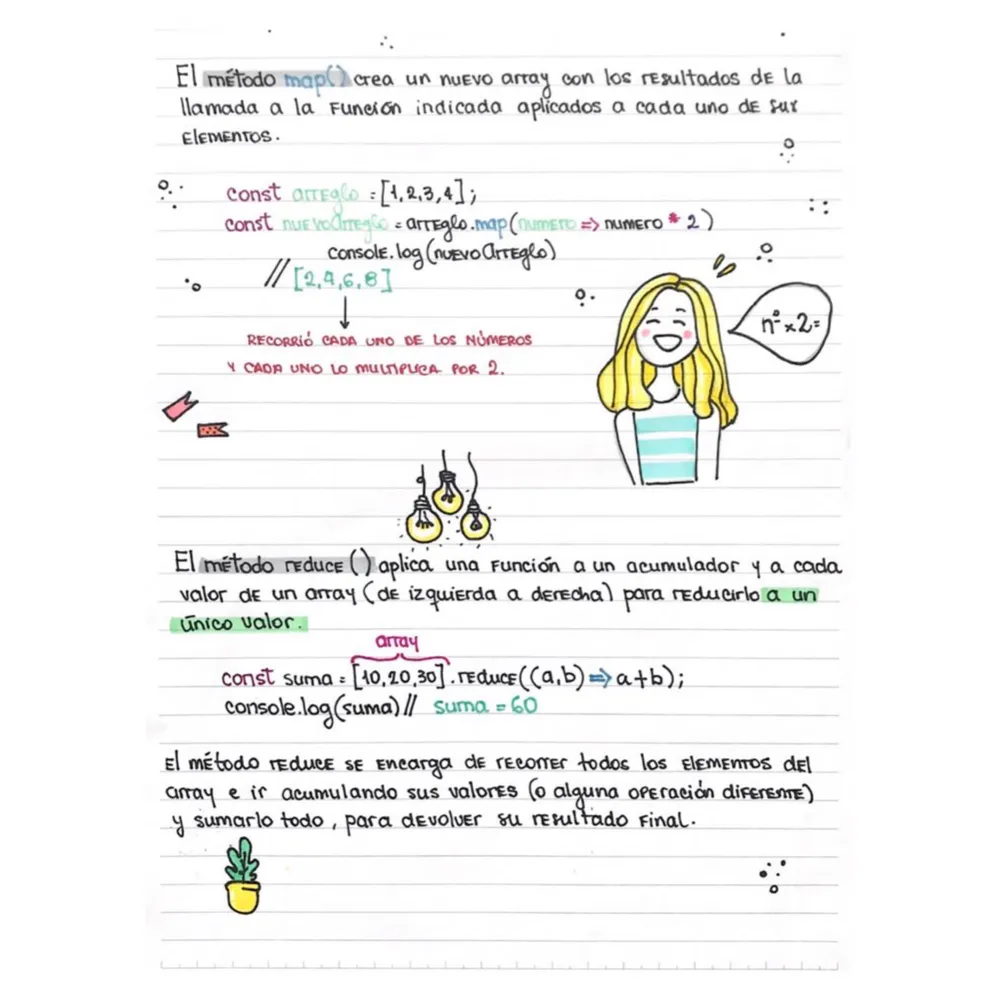 El método map() crea un nuevo array con los resultados de la
llamada a la función indicada aplicados a cada uno de sus
elementos.
const arreglo = [1,2,3,4];
const nuevoArreglo = arreglo.map(numero => numero * 2)
console.log(nuevoArreglo)
// [2,4,6,8]
n° x 2=
RECORRIÓ CADA UNO DE LOS NÚMEROS
Y CADA UNO LO MULTIPLICA POR 2.
El método reduce() aplica una función a un acumulador y a cada
valor de un array (de izquierda a derecha) para reducirlo a un
único valor.
array
const suma = [10,20,30].reduce((a,b) => a+b);
console.log(suma) // suma = 60
El método reduce se encarga de recorrer todos los elementos del
array e ir acumulando sus valores (o alguna operación diferente)
y sumarlo todo, para devolver su resultado final.